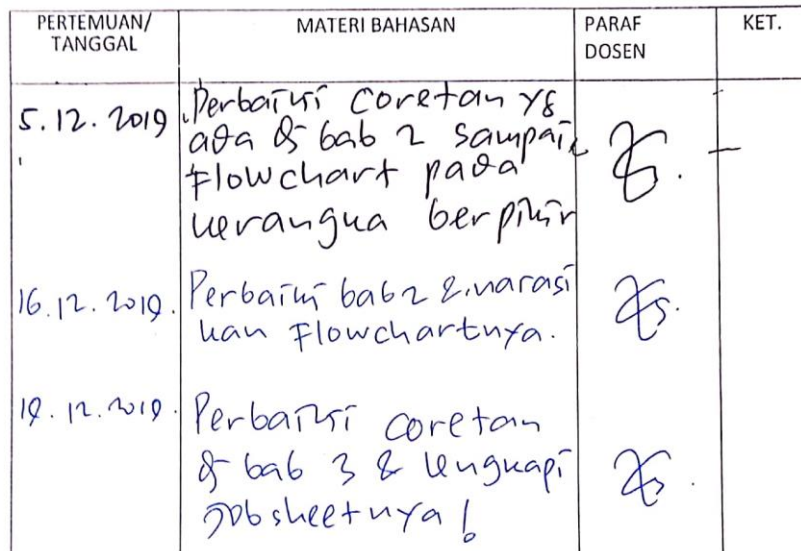 PERTEMUAN/
TANGGAL
MATERI BAHASAN
PARAF
DOSEN
KET.
5.12.2019
Perbaiki coretan yg
ada di bab 2 sampai
Flowchart pada
kerangka berpikir
16.12.2019.
Perbaiki bab 2 & narasi
kan Flowchartnya.
19.12.2019.
Perbaiki coretan
di bab 3 & lengkapi
Jobsheetnya!